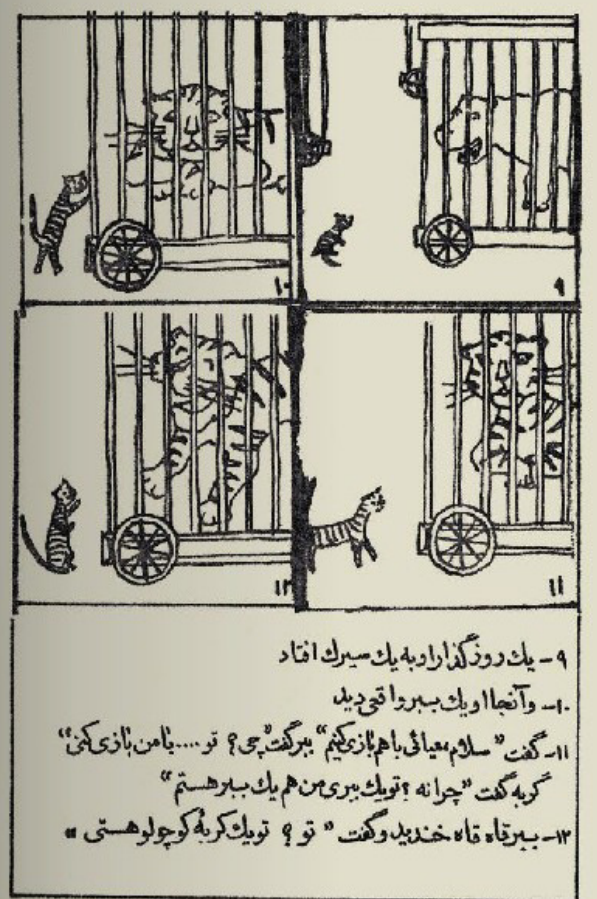 ۹
۱۰
۱۱
۱۲
۹- يك روز گذار او به يك سيرك افتاد
۱۰- و آنجا او يك ببر واقعی ديد
۱۱- گفت "سلام، ميائی با هم بازی كنيم" ببر گفت "چی؟ تو .... با من بازی كنی؟"
گربه گفت "چرا نه؟ تو يك ببری من هم يك ببر هستم"
۱۲- ببر قاه قاه خنديد و گفت "تو؟ تو يك گربهٔ كوچولو هستی"